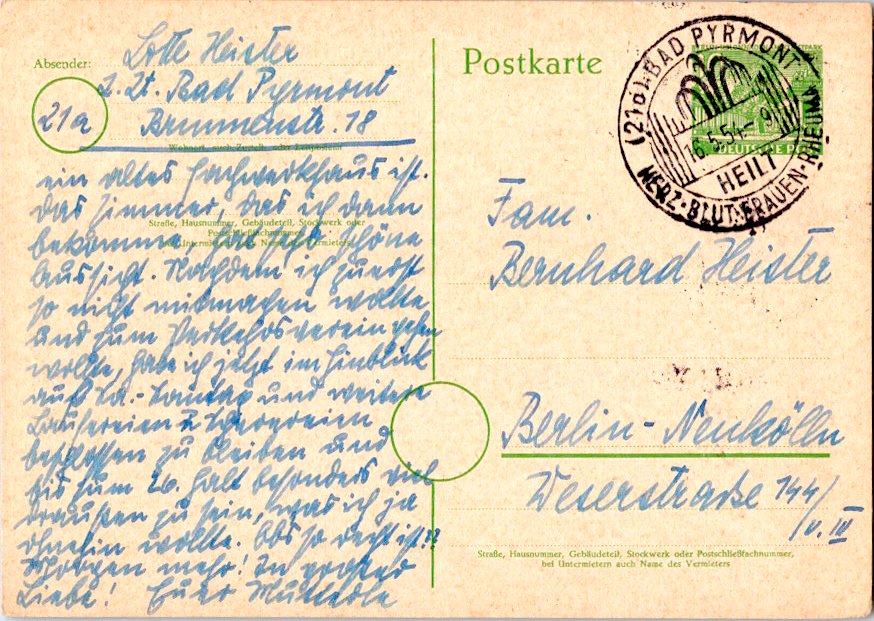 Absender:
Lotte Heister
z. Zt. Bad Pyrmont
21a
Brunnenstr. 18
Wohnort, auch Zustell- oder Leitpostamt
ein altes Fachwerkhaus ist.
Das Zimmer, das ich dann
bekomme, schöne
Straße, Hausnummer, Gebäudeteil, Stockwerk oder
Postschließfachnummer,
bei Untermietern auch Name des Vermieters
Aussicht. Nachdem ich zuerst
so nicht mitmachen wollte
und zum Verkehrsverein gehen
wollte, habe ich jetzt im Hinblick
auf Sa.-Sonntag und weitere
Laufereien u. Scherereien
beschlossen zu bleiben und
bis zum 26. halt besonders viel
draußen zu sein, was ich ja
ohnehin wollte. Obs so recht ist??
Morgen mehr! In großer
Liebe! Euer Mutterle
Postkarte
DEUTSCHE POST
(21a) BAD PYRMONT
16.5.54.-9
HEILT
HERZ·BLUT·FRAUEN·RHEUMA
Fam.
Bernhard Heister
Berlin-Neukölln
Weserstraße 144/
v. IV
Straße, Hausnummer, Gebäudeteil, Stockwerk oder Postschließfachnummer,
bei Untermietern auch Name des Vermieters